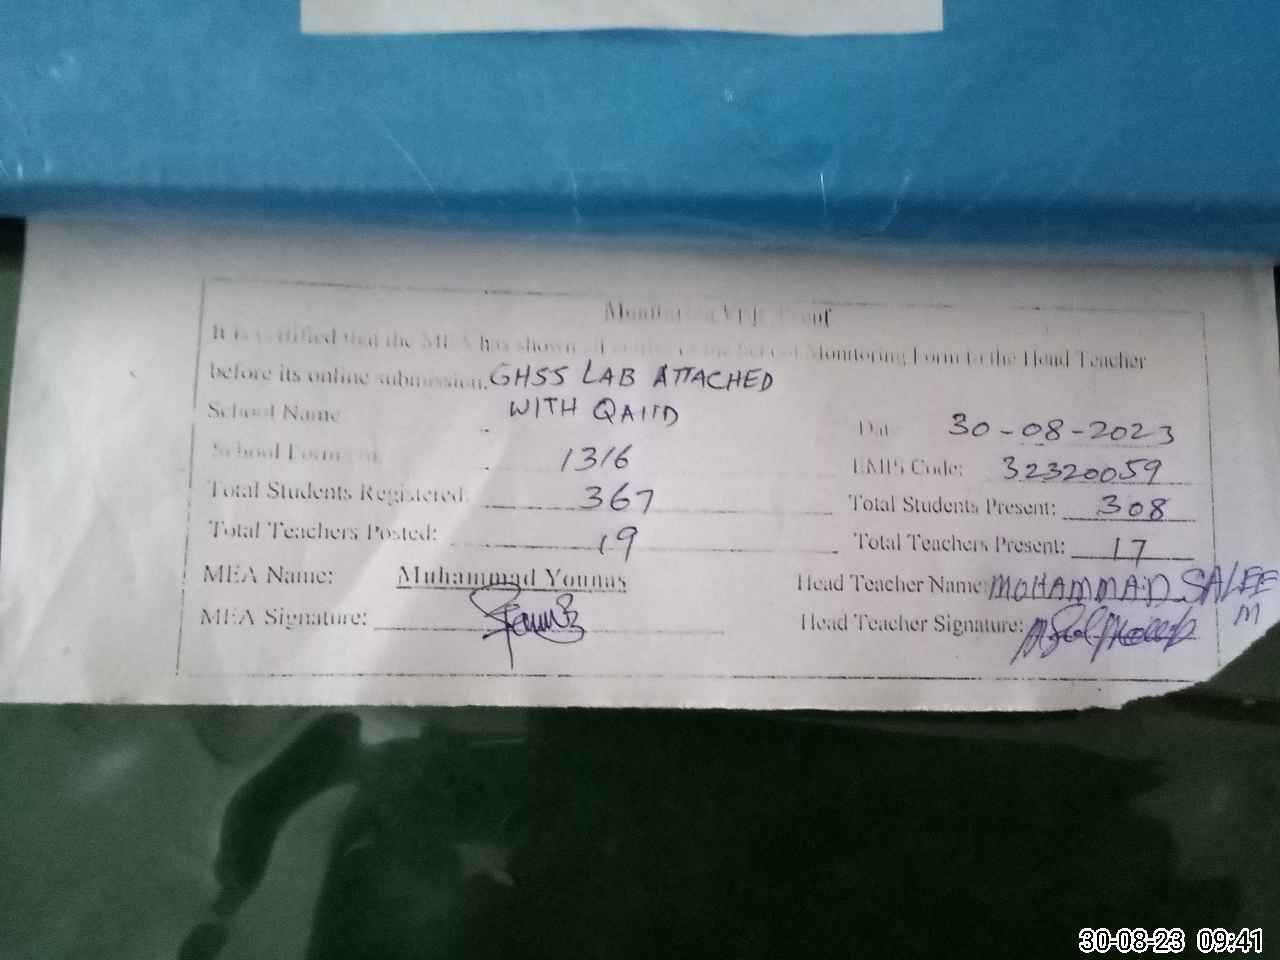 Monitoring
It is certified that the MEA has shown Monitoring Form to the Head Teacher
before its online submission. GHSS LAB ATTACHED
School Name WITH QAIID
Date 30-08-2023
School Form 1316
EMIS Code: 32320059
Total Students Registered: 367
Total Students Present: 308
Total Teachers Posted: 19
Total Teachers Present: 17
MEA Name: Muhammad Younas
Head Teacher Name: MOHAMMAD SALEE
M
MEA Signature:
Head Teacher Signature:
30-08-23 09:41